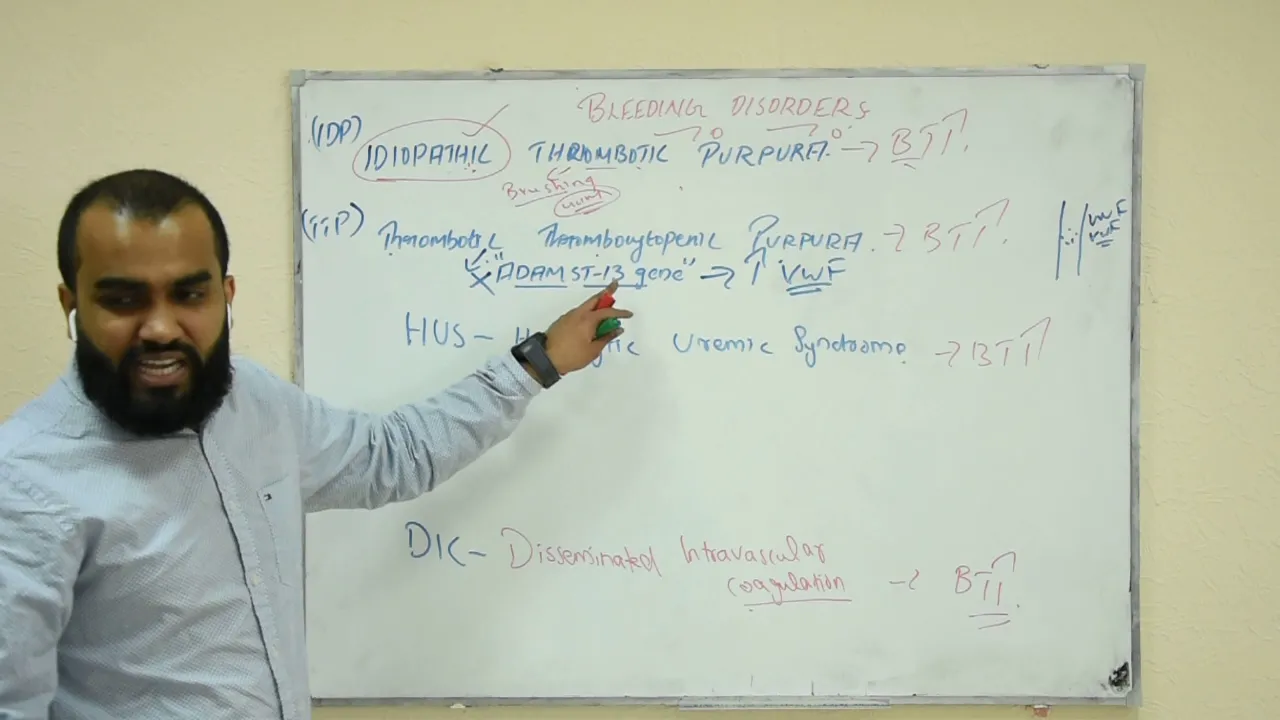 BLEEDING DISORDERS
(IDP) IDIOPATHIC THROMBOTIC PURPURA. → BT↑
Brushing
(TTP) Thrombotic Thrombocytopenic PURPURA. → BT↑
"ADAMST-13 gene" → ↑ VWF
VWF
VWF
HUS - Uremic Syndrome → BT↑
DIC - Disseminated Intravascular
coagulation → BT↑